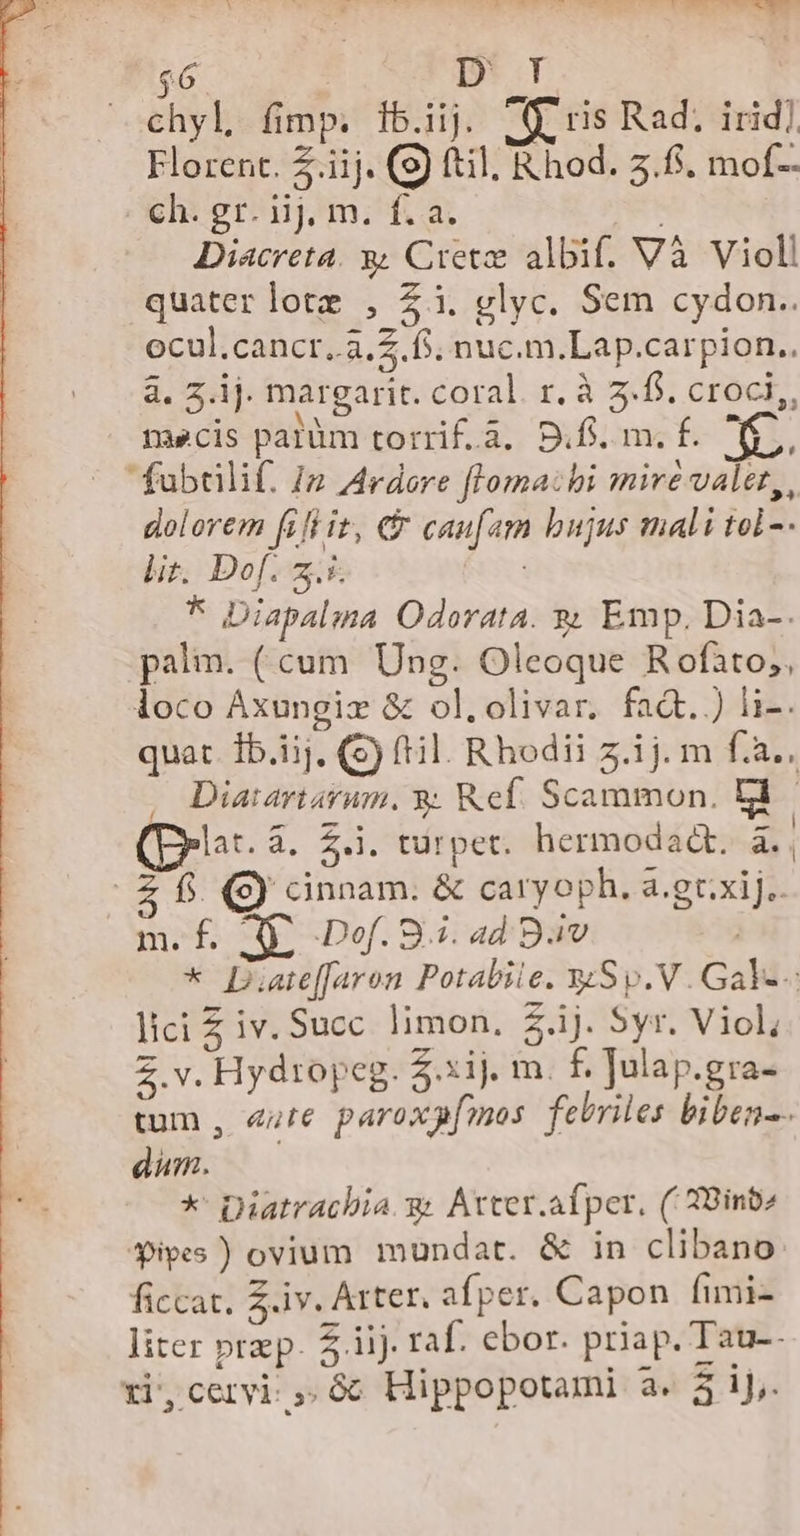 56 D I
chyl. ſimp. ℔.iij. 🜍ris Rad. irid].
Florent. ℥.iij. ☉ ſtil. Rhod. ʒ.ß. moſ-
ch. gr. iij, m. ſ. a.
Diacreta. ℞ Cretæ albiſ. Và Violl
quater lotæ , ℥ i. glyc. Sem cydon..
ocul.cancr. ã.℥.ß. nuc.m.Lap.carpion..
ã. ʒ.ij. margarit. coral. r. à ʒ.ß. croci,,
mæcis parùm torriſ. ã. ℈.ß. m. f.
ſubtiliſ. In Ardore ſtomachi mirè valet,,
dolorem ſiſtit, & cauſam hujus mali tol-
lit. Doſ. ʒ.i.
* Diapalma Odorata. ℞ Emp. Dia-
palm. (cum Ung. Oleoque Roſato,,
loco Axungiæ & ol, olivar. fact.) li-
quat ℔.iij. ☉ ſtil. Rhodii ʒ.ij. m ſ.a..
Diatartarum. ℞ Reſ. Scammon.
lat. ã. ℥.i. turpet. hermodact. ã.
℥ ß ☉ cinnam. & caryoph. ã.gt.xij.
m. f. Doſ. ℈.i. ad ℈.iv
* Diateſſaron Potabile. ℞Sp.V. Gal-
lici ℥ iv. Succ limon. ℥.ij. Syr. Viol,
℥.v. Hydropeg. ℥.xij. m. f. Julap.gra-
tum , ante paroxyſmos febriles biben-
dum.
* Diatrachia ℞ Arter.aſper. (Wind-
Pipes) ovium mundat. & in clibano
ſiccat. ℥.iv. Arter. aſper. Capon ſimi-
liter præp. ℥.iij. raſ. ebor. priap. Tau-
ri, cervi ,. & Hippopotami ã. ℥ ij,.